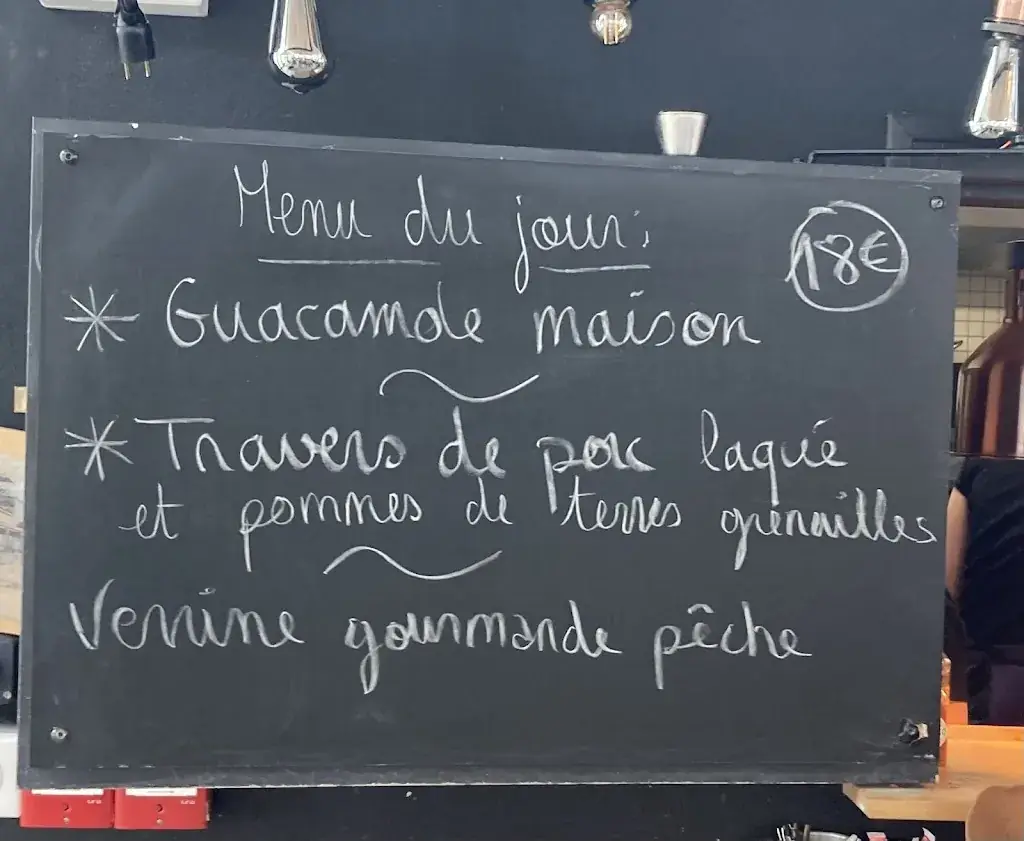 Menu du jour:
18€
* Guacamole maison
* Travers de porc laqué
et pommes de terres grenailles
Verrine gourmande pêche